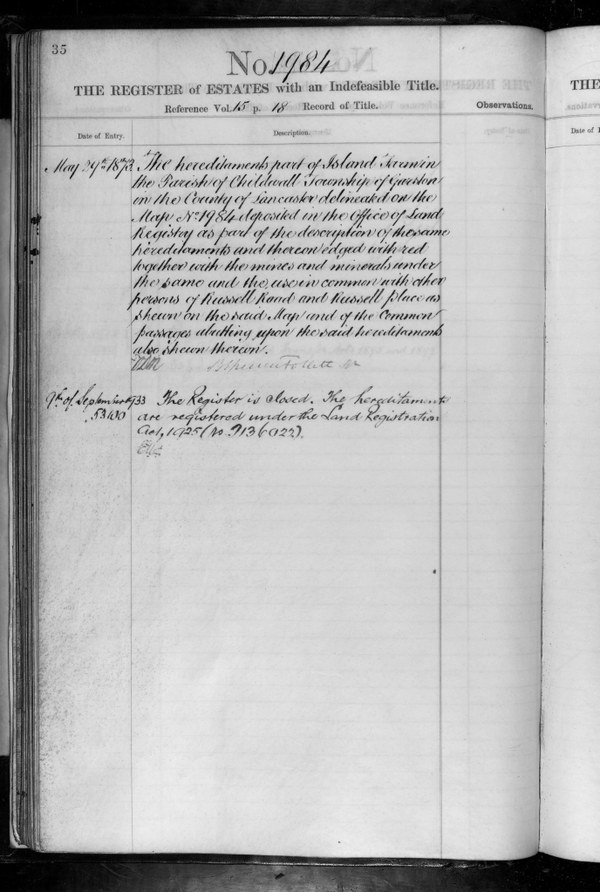 35
No. 1984
THE REGISTER of ESTATES with an Indefeasible Title.
Reference Vol. 15 p. 18 Record of Title.
Observations.
Date of Entry.
Description.
May 29th 1873
The hereditaments part of Island Farm in
the Parish of Childwall Township of Garston
in the County of Lancaster delineated on the
Map No 1984 deposited in the Office of Land
Registry as part of the description of the same
hereditaments and thereon edged with red
together with the mines and minerals under
the same and the use in common with other
persons of Russell Road and Russell place as
shewn on the said Map and of the Common
passages abutting upon the said hereditaments
also shewn thereon.
9th of September 1933
The Register is closed. The hereditaments
are registered under the Land Registration
Act, 1925 (No. P136022).
THE
Date of E